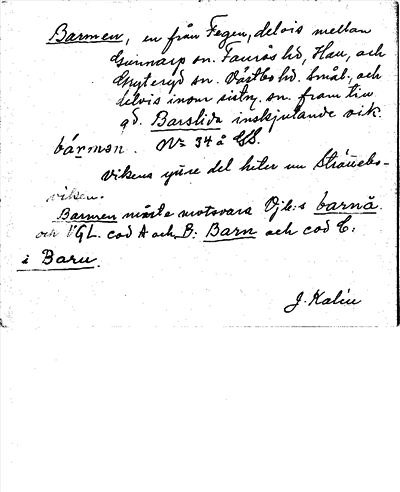 Barmen, en från Fegen, delvis mellan
Gunnarp sn. Faurås hd, Hall., och
Gryteryd sn. Västbo hd. Smål., och
delvis inom sistn. sn. fram till
gd. Barslida inskjutande vik.
bármən. Nr 34 å GS.
Vikens yttre del heter nu
viken.
Barmen måste motsvara Vjb:s barnå
och VGL. cod A och B: Barn och cod C:
i Baru.
J. Kalén